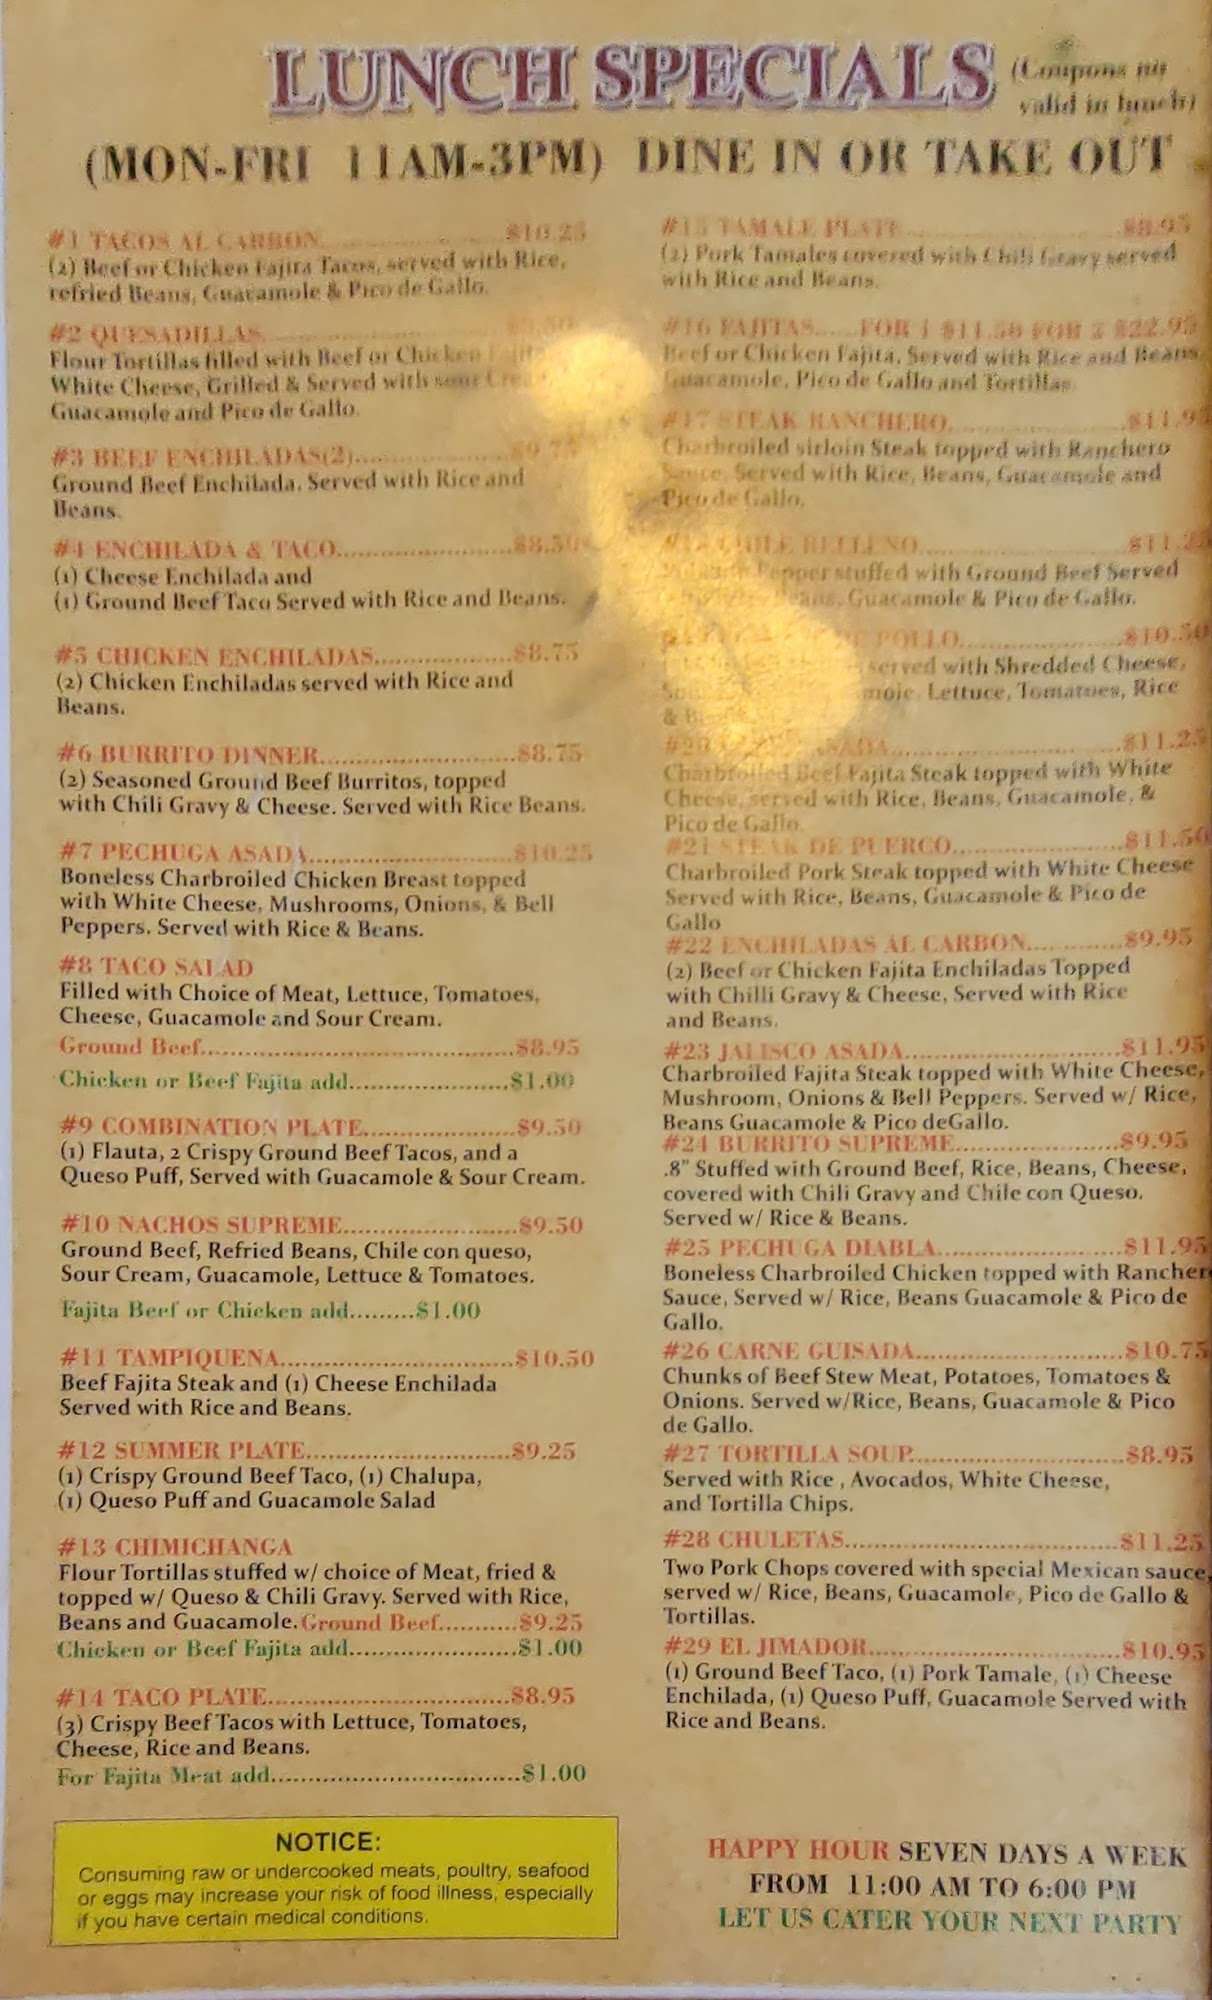 LUNCH SPECIALS
(Coupons
valid in lunch)
(MON-FRI 11AM-3PM) DINE IN OR TAKE OUT
#1 TACOS AL CARBON..........................$10.25
(2) Beef or Chicken Fajita Tacos, served with Rice,
refried Beans, Guacamole & Pico de Gallo.
#2 QUESADILLAS
Flour Tortillas filled with Beef or Chicken
White Cheese, Grilled & Served with sour
Guacamole and Pico de Gallo.
#3 BEEF ENCHILADAS(2)......................$9.75
Ground Beef Enchilada. Served with Rice and
Beans.
#4 ENCHILADA & TACO........................$8.50
(1) Cheese Enchilada and
(1) Ground Beef Taco Served with Rice and Beans.
#5 CHICKEN ENCHILADAS...................$8.75
(2) Chicken Enchiladas served with Rice and
Beans.
#6 BURRITO DINNER...........................$8.75
(2) Seasoned Ground Beef Burritos, topped
with Chili Gravy & Cheese. Served with Rice Beans.
#7 PECHUGA ASADA............................$10.25
Boneless Charbroiled Chicken Breast topped
with White Cheese, Mushrooms, Onions, & Bell
Peppers. Served with Rice & Beans.
#8 TACO SALAD
Filled with Choice of Meat, Lettuce, Tomatoes,
Cheese, Guacamole and Sour Cream.
Ground Beef...........................................$8.95
Chicken or Beef Fajita add......................$1.00
#9 COMBINATION PLATE.....................$9.50
(1) Flauta, 2 Crispy Ground Beef Tacos, and a
Queso Puff, Served with Guacamole & Sour Cream.
#10 NACHOS SUPREME........................$9.50
Ground Beef, Refried Beans, Chile con queso,
Sour Cream, Guacamole, Lettuce & Tomatoes.
Fajita Beef or Chicken add.........$1.00
#11 TAMPIQUENA................................$10.50
Beef Fajita Steak and (1) Cheese Enchilada
Served with Rice and Beans.
#12 SUMMER PLATE............................$9.25
(1) Crispy Ground Beef Taco, (1) Chalupa,
(1) Queso Puff and Guacamole Salad
#13 CHIMICHANGA
Flour Tortillas stuffed w/ choice of Meat, fried &
topped w/ Queso & Chili Gravy. Served with Rice,
Beans and Guacamole. Ground Beef...........$9.25
Chicken or Beef Fajita add.......................$1.00
#14 TACO PLATE.................................$8.95
(3) Crispy Beef Tacos with Lettuce, Tomatoes,
Cheese, Rice and Beans.
For Fajita Meat add..................................$1.00
NOTICE:
Consuming raw or undercooked meats, poultry, seafood
or eggs may increase your risk of food illness, especially
if you have certain medical conditions.
#15 TAMALE PLATE..............................$8.95
(2) Pork Tamales covered with Chili Gravy served
with Rice and Beans.
#16 FAJITAS......FOR 1 $11.50 FOR 2 $22.95
Beef or Chicken Fajita, Served with Rice and Beans
Guacamole, Pico de Gallo and Tortillas.
#17 STEAK RANCHERO........................$11.95
Charbroiled sirloin Steak topped with Ranchero
Sauce. Served with Rice, Beans, Guacamole and
Pico de Gallo.
CHILE RELLENO............................$11.25
Pepper stuffed with Ground Beef Served
Beans, Guacamole & Pico de Gallo.
DE POLLO......................$10.50
served with Shredded Cheese,
Lettuce, Tomatoes, Rice
&
#20 ASADA...............................$11.25
Charbroiled Beef Fajita Steak topped with White
Cheese, served with Rice, Beans, Guacamole, &
Pico de Gallo.
#21 STEAK DE PUERCO.......................$11.50
Charbroiled Pork Steak topped with White Cheese
Served with Rice, Beans, Guacamole & Pico de
Gallo
#22 ENCHILADAS AL CARBON.............$9.95
(2) Beef or Chicken Fajita Enchiladas Topped
with Chilli Gravy & Cheese, Served with Rice
and Beans.
#23 JALISCO ASADA.............................$11.95
Charbroiled Fajita Steak topped with White Cheese,
Mushroom, Onions & Bell Peppers. Served w/ Rice,
Beans Guacamole & Pico deGallo.
#24 BURRITO SUPREME.......................$9.95
.8" Stuffed with Ground Beef, Rice, Beans, Cheese,
covered with Chili Gravy and Chile con Queso.
Served w/ Rice & Beans.
#25 PECHUGA DIABLA.........................$11.95
Boneless Charbroiled Chicken topped with Rancher
Sauce, Served w/ Rice, Beans Guacamole & Pico de
Gallo.
#26 CARNE GUISADA............................$10.75
Chunks of Beef Stew Meat, Potatoes, Tomatoes &
Onions. Served w/Rice, Beans, Guacamole & Pico
de Gallo.
#27 TORTILLA SOUP.............................$8.95
Served with Rice , Avocados, White Cheese,
and Tortilla Chips.
#28 CHULETAS.....................................$11.25
Two Pork Chops covered with special Mexican sauce,
served w/ Rice, Beans, Guacamole, Pico de Gallo &
Tortillas.
#29 EL JIMADOR..................................$10.95
(1) Ground Beef Taco, (1) Pork Tamale, (1) Cheese
Enchilada, (1) Queso Puff, Guacamole Served with
Rice and Beans.
HAPPY HOUR SEVEN DAYS A WEEK
FROM 11:00 AM TO 6:00 PM
LET US CATER YOUR NEXT PARTY